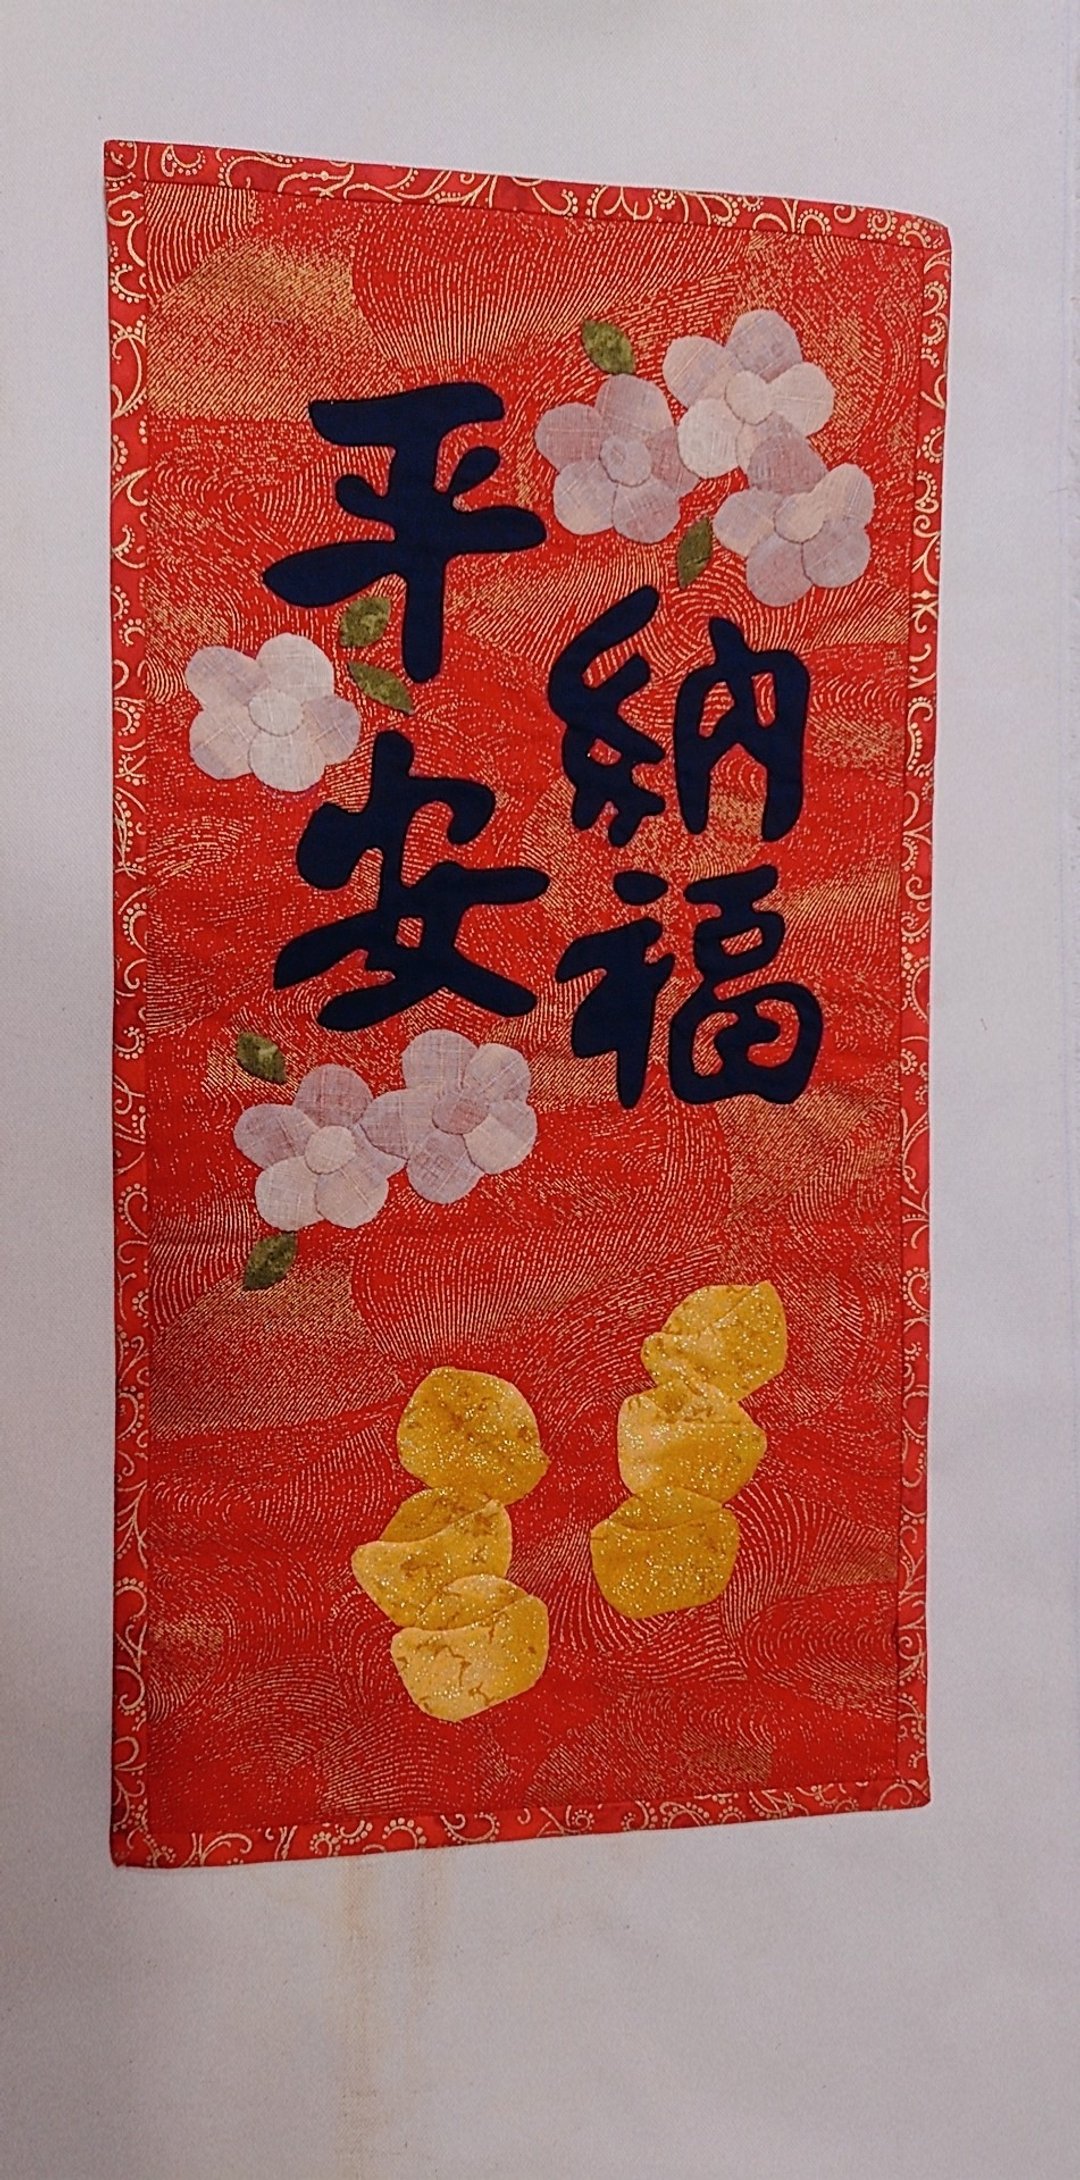 納福
平安